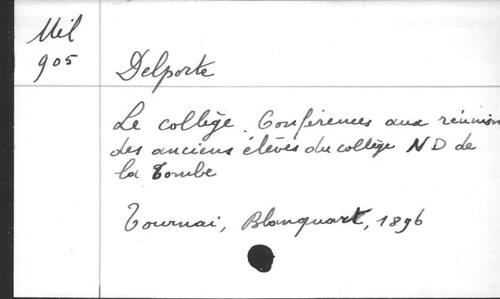 Mil
905
Delporte
Le collège. Conférences aux réunion
des anciens élèves du collège ND de
la Tombe
Tournai, Blanquart, 1896